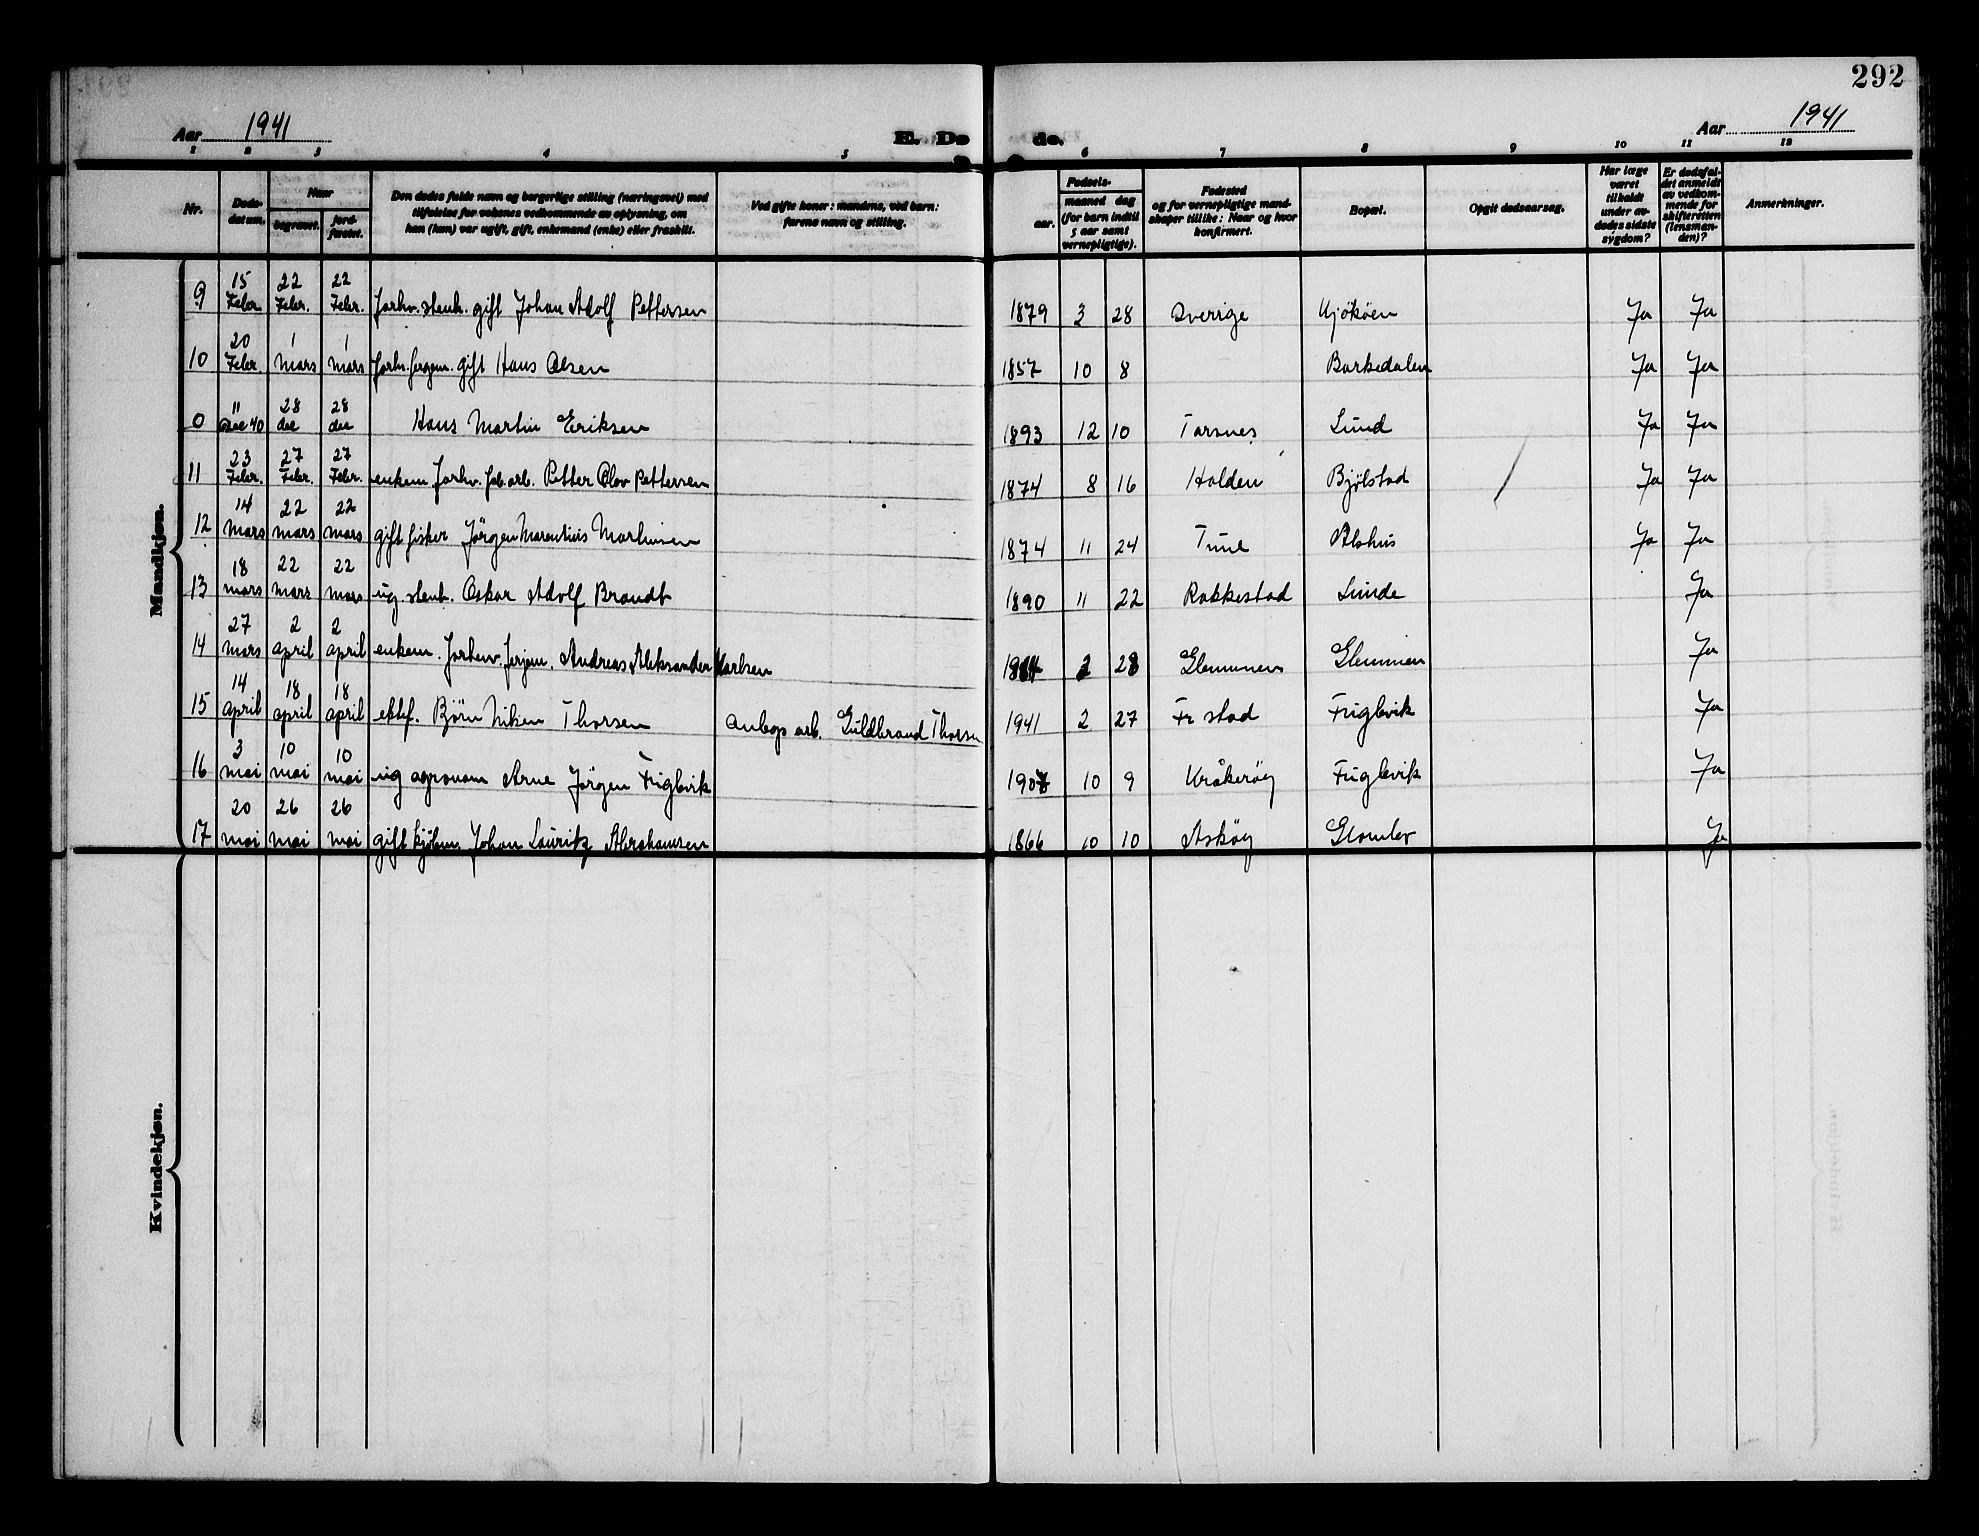 292
Aar 1941
E. Dø
de.
Aar 1941
1 2 3 4 5 6 7 8 9 10 11 12
Nr.
Døds-datum.
Naar
begravet.
jord-fæstet.
Den dødes fulde navn og borgerlige stilling (næringsvei) med
tilføielse for voksnes vedkommende av oplysning, om
han (hun) var ugift, gift, enkemand (enke) eller fraskilt.
Ved gifte koner: mandens, ved barn:
farens navn og stilling.
Fødsels-
aar.
maaned dag
(for barn indtil
5 aar samt
vernepligtige).
Fødested
og for vernepligtige mand-
skaper tillike: Naar og hvor
konfirmert.
Bopæl.
Opgit dødsaarsag.
Har læge
været
tilkaldt
under av-
dødes sidste
sygdom?
Er dødsfal-
det anmeldt
av vedkom-
mende for
skifteretten
(lensman-
den)?
Anmerkninger.
Mandkjøn.
9 15 Febr. 22 Febr. 22 Febr. forhv. stenh. gift Johan Adolf Pettersen 1879 3 28 Sverige Kjøkøen Ja Ja
10 20 Febr. 1 mars 1 mars forhv. fergem. gift Hans Olsen 1857 10 8 Barkedalen Ja Ja
0 11 Des 40 28 des 28 des Hans Martin Eriksen 1893 12 10 Torsnes Lund Ja Ja
11 23 Febr. 27 Febr. 27 Febr. enkem. forhv. fab. arb. Petter Olav Pettersen 1874 8 16 Halden Bjølstad Ja Ja
12 14 mars 22 mars 22 mars gift fisker Jørgen Marentius Martinsen 1874 11 24 Tune Alshus Ja Ja
13 18 mars 22 mars 22 mars ug. stenh. Oskar Adolf Brandt 1890 11 22 Rakkestad Lunde Ja
14 27 mars 2 april 2 april enkem. forhenv. ferjem. Andreas Aleksander Karlsen 2 28 Glemmen Glemmen Ja
15 14 april 18 april 18 april ektef. Bjørn Nilsen Thorsen anlegs arb. Guldbrand Thorsen 1941 2 27 Fr stad Fuglevik Ja
16 3 mai 10 mai 10 mai ug agronom Arne Jørgen Fuglevik 1907 10 9 Kråkerøy Fuglevik Ja
17 20 mai 26 mai 26 mai gift kjøbm. Johan Lauritz Abrahamsen 1866 10 10 Askøy Glombo Ja
Kvindekjøn.